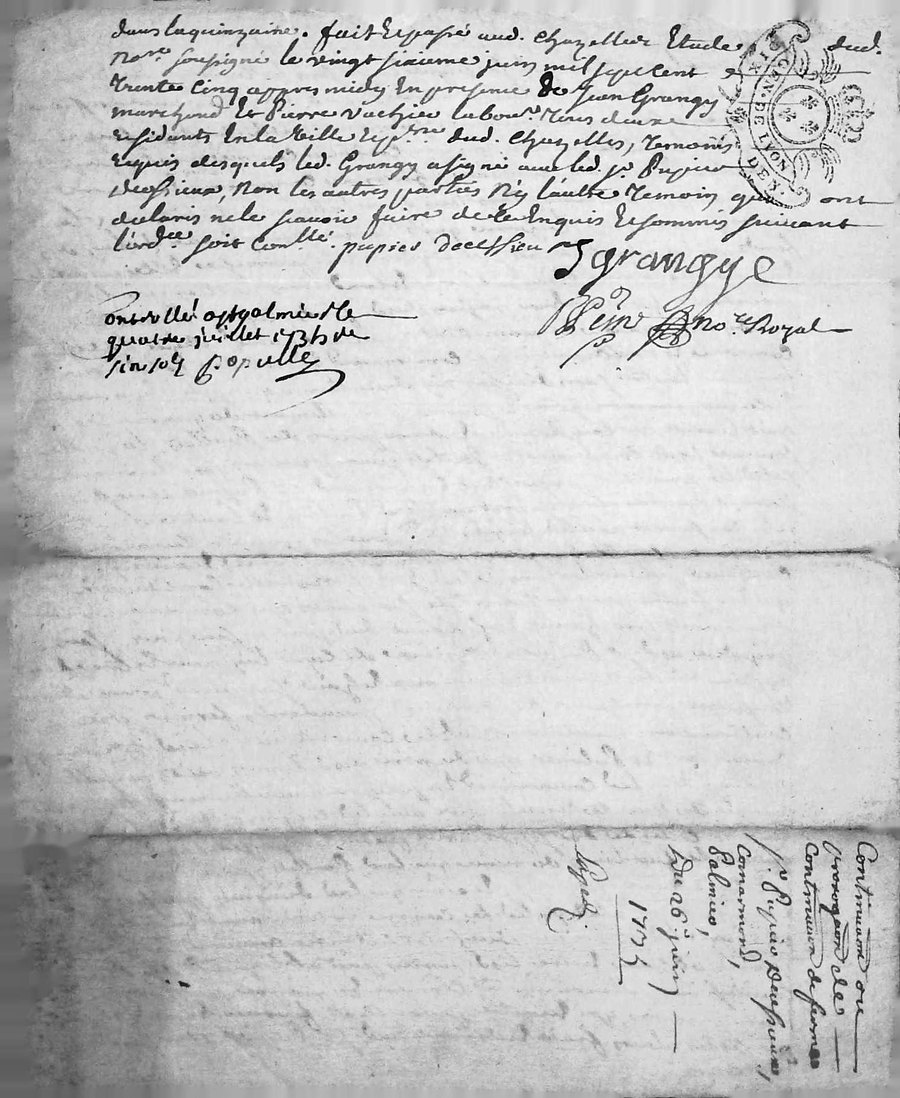 dans laquinzaine. fait Et passé aud. Chazelles Etude dud.
No.re soussigné le vingt sixieme juin mil sept cent
Trente cinq appres midy En presence de Jean Grangy
marchand Et Pierre vachier labou.r Tous deux
residants En la Ville Et p.sse dud. Chazelles, Temoins
requis desquels led. Grangy a signé avec led. s.r Pupier
Dessieux, Non les autres parties Ny laultre Temoin qui ont
declaris ne le scavoir faire de Ce Enquis Et sommés suivant
lord.ce soit Conllé. pupier
Jgrangye
no.re Royal
Controllé a stgalmier le
quatre juillet 1735 Re
six sols
GEN. DE LYON
Continuaon ou
prorogaon de
Continuaon de ferme
s.r Pupier Dessieux,
Comarmond,
Palmier,
Du 26 juin
1735